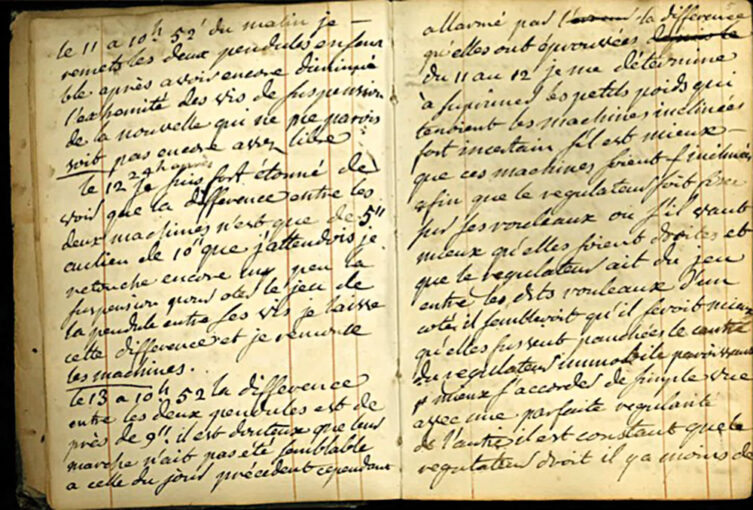 le 11 a 10h 52' du matin je —
remets les deux pendules ensem
ble après avoir encore diminué
l'extremité des vis de suspension
de la nouvelle qui ne me parois
soit pas encore assez libre
le 12 24h après
je suis fort étonné de
voir que la difference entre les
deux machines n'est que de 5"
au lieu de 10" que j'attendois je
retouche encore un peu la
suspension pour oter le jeu de
la pendule entre ses vis je laisse
cette difference et je remonte
les machines.
le 13 a 10h 52 la difference
entre les deux pendules est de
près de 9". il est douteux que leur
marche n'ait pas été semblable
a celle du jour précedent cependant
allarmé par la difference
qu'elles ont éprouvées
du 11 au 12 je me détermine
à suprimer les petits poids qui
tenoient les machines inclinées
fort incertain s'il est mieux —
que ces machines soient inclinées
afin que le regulateur soit fixé
sur ses rouleaux ou s'il vaut
mieux qu'elles soient droites et
que le regulateur ait du jeu
entre les dits rouleaux d'un
coté, il sembleroit qu'il seroit mieux
qu'elles fussent panchées le centre
du regulateur immobile paroissant
mieux s'accorder de simple vue
avec une parfaite regularité
de l'autre il est constant que le
regulateur droit il y a moins de